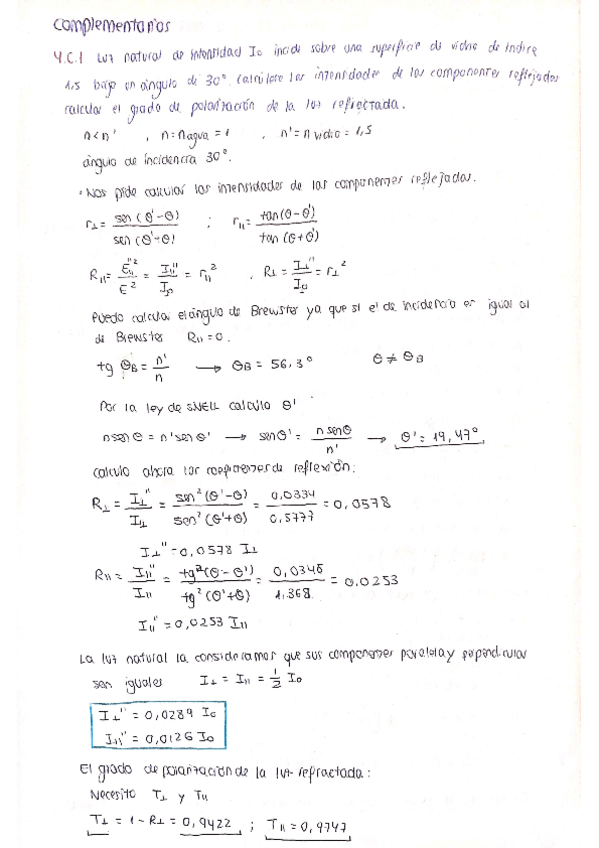 complementarios
4.C.1 Luz natural de intensidad I₀ incide sobre una superficie de vidrio de índice
1,5 bajo un ángulo de 30°. Calcúlese las intensidades de las componentes reflejadas
calcular el grado de polarización de la luz refractada.
n<n' , n = n agua = 1 , n' = n vidrio = 1,5
ángulo de incidencia 30°.
• Nos pide calcular las intensidades de las componentes reflejadas.
r⊥ = sen (θ'-θ) / sen (θ'+θ) ; r∥ = tan(θ-θ') / tan (θ+θ')
R∥ = ε∥''² / ε² = I∥'' / I₀ = r∥² , R⊥ = I⊥'' / I₀ = r⊥²
Puedo calcular el ángulo de Brewster ya que si el de incidencia es igual al
de Brewster R∥ = 0.
tg θB = n' / n → θB = 56,3° θ ≠ θB
Por la ley de SNELL calculo θ'
n sen θ = n' sen θ' → sen θ' = n sen θ / n' → θ' = 19,47°
calculo ahora las componentes de reflexión:
R⊥ = I⊥'' / I⊥ = sen² (θ'-θ) / sen² (θ'+θ) = 0,0334 / 0,5777 = 0,0578
I⊥'' = 0,0578 I⊥
R∥ = I∥'' / I∥ = tg² (θ-θ') / tg² (θ'+θ) = 0,0346 / 1.368 = 0.0253
I∥'' = 0,0253 I∥
La luz natural la consideramos que sus componentes paralela y perpendicular
son iguales I⊥ = I∥ = 1/2 I₀
I⊥'' = 0,0289 I₀
I∥'' = 0,0126 I₀
El grado de polarización de la luz refractada:
Necesito T⊥ y T∥
T⊥ = 1 - R⊥ = 0,9422 ; T∥ = 0,9747